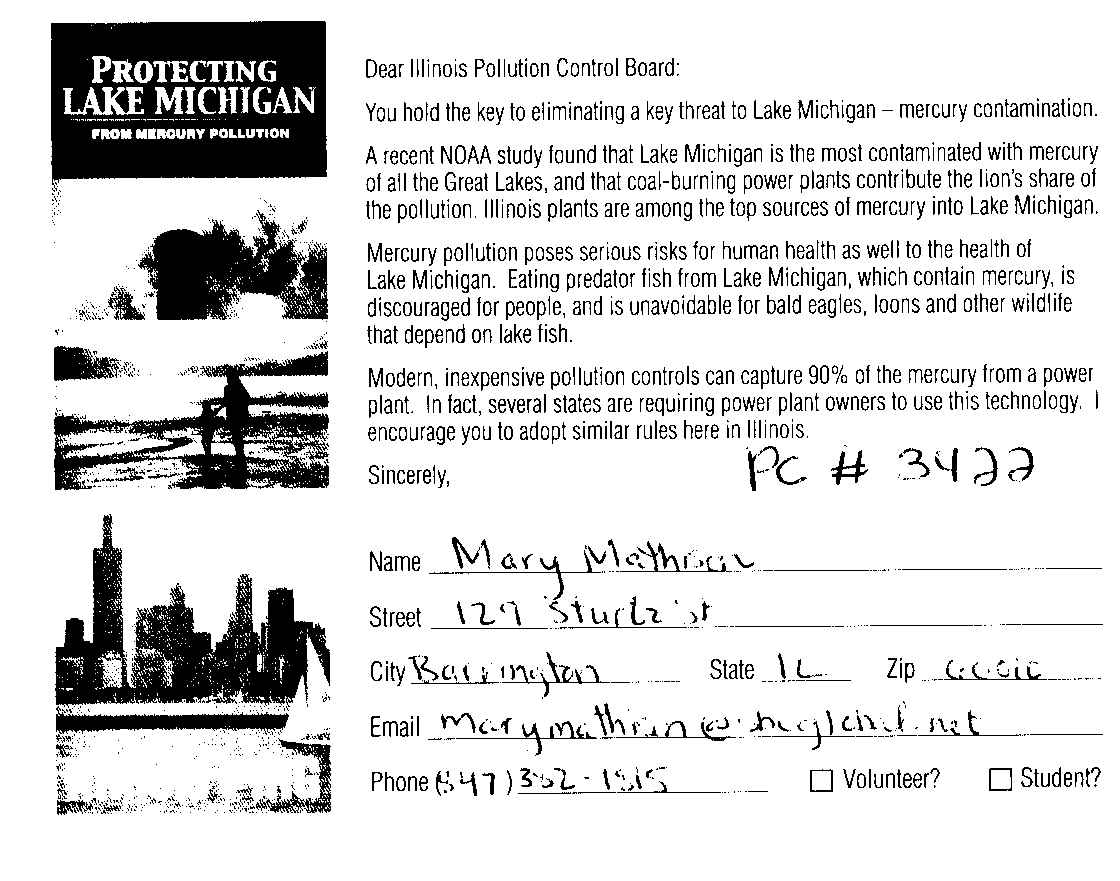 PROTECTING
LAKE MICHIGAN
FROM MERCURY POLLUTION
Dear Illinois Pollution Control Board:
You hold the key to eliminating a key threat to Lake Michigan – mercury contamination.
A recent NOAA study found that Lake Michigan is the most contaminated with mercury
of all the Great Lakes, and that coal-burning power plants contribute the lion's share of
the pollution. Illinois plants are among the top sources of mercury into Lake Michigan.
Mercury pollution poses serious risks for human health as well to the health of
Lake Michigan. Eating predator fish from Lake Michigan, which contain mercury, is
discouraged for people, and is unavoidable for bald eagles, loons and other wildlife
that depend on lake fish.
Modern, inexpensive pollution controls can capture 90% of the mercury from a power
plant. In fact, several states are requiring power plant owners to use this technology. I
encourage you to adopt similar rules here in Illinois.
Sincerely,
PC # 3422
Name Mary
Street 129 st
City Barrington State IL Zip
Email
Phone
Volunteer? Student?